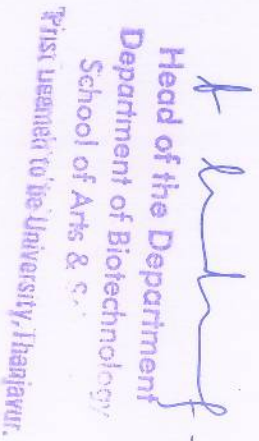 Head of the Department
Department of Biotechnology
School of Arts &
Prist Deemed to be University, Thanjavur.